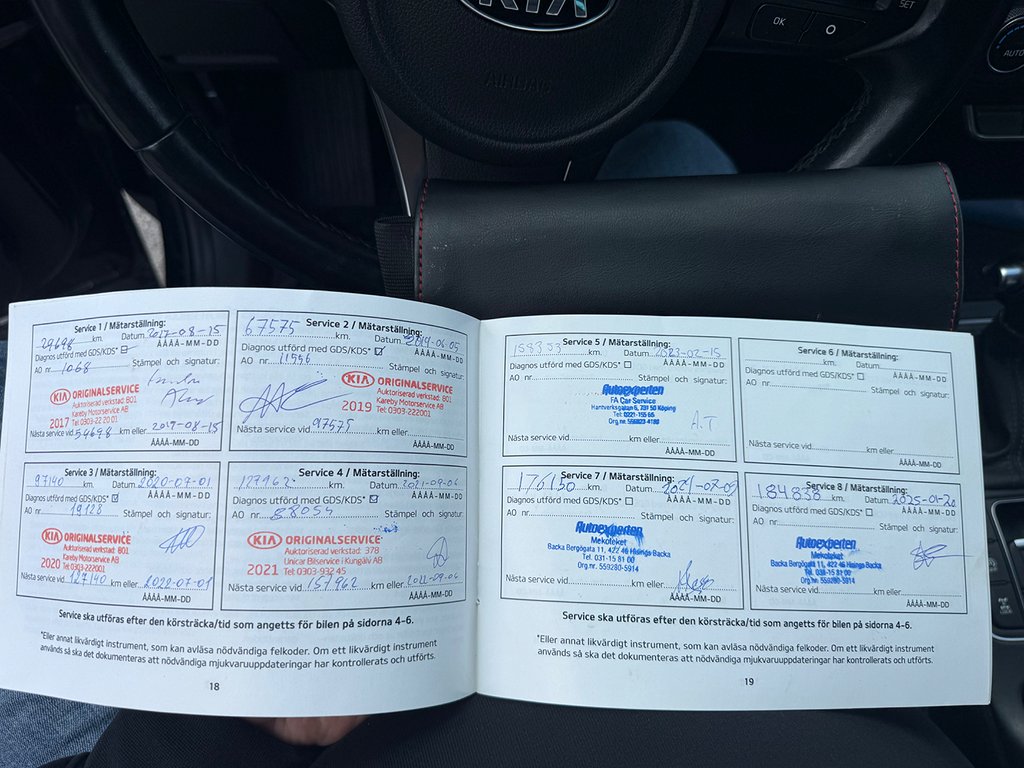 KIA
OK
SET
AUTO
AIRBAG
Service 1 / Mätarställning:
29698 km. Datum 2017-08-15
Diagnos utförd med GDS/KDS* ÅÅÅÅ-MM-DD
AO nr. 1068 Stämpel och signatur:
KIA ORIGINALSERVICE
Auktoriserad verkstad: 801
Kareby Motorservice AB
2017 Tel: 0303-22 20 01
Nästa service vid 54698 km eller 2019-08-15
ÅÅÅÅ-MM-DD
Service 2 / Mätarställning:
67575 km. Datum 2019-06-05
Diagnos utförd med GDS/KDS* ÅÅÅÅ-MM-DD
AO nr. 11556 Stämpel och signatur:
KIA ORIGINALSERVICE
Auktoriserad verkstad: 801
Kareby Motorservice AB
2019 Tel: 0303-222001
Nästa service vid 97575 km eller
ÅÅÅÅ-MM-DD
Service 3 / Mätarställning:
97140 km. Datum 2020-07-01
Diagnos utförd med GDS/KDS* ÅÅÅÅ-MM-DD
AO nr. 19128 Stämpel och signatur:
KIA ORIGINALSERVICE
Auktoriserad verkstad: 801
Kareby Motorservice AB
2020 Tel: 0303-222001
Nästa service vid 127140 km eller 2022-07-01
ÅÅÅÅ-MM-DD
Service 4 / Mätarställning:
127962 km. Datum 2021-09-06
Diagnos utförd med GDS/KDS* ÅÅÅÅ-MM-DD
AO nr. 88055 Stämpel och signatur:
KIA ORIGINALSERVICE
Auktoriserad verkstad: 378
Unicar Bilservice i Kungälv AB
2021 Tel: 0303-932 45
Nästa service vid 157962 km eller 2022-09-06
ÅÅÅÅ-MM-DD
Service ska utföras efter den körsträcka/tid som angetts för bilen på sidorna 4-6.
*Eller annat likvärdigt instrument, som kan avläsa nödvändiga felkoder. Om ett likvärdigt instrument
används så ska det dokumenteras att nödvändiga mjukvaruuppdateringar har kontrollerats och utförts.
18
Service 5 / Mätarställning:
158333 km. Datum 2023-02-15
Diagnos utförd med GDS/KDS* ÅÅÅÅ-MM-DD
AO nr. Stämpel och signatur:
Autoexperten
FA Car Service
Hantverksgatan 6, 731 50 Köping
Tel: 0221-155 65
Org.nr. 559823-4180
A.T
Nästa service vid km eller
ÅÅÅÅ-MM-DD
Service 6 / Mätarställning:
km. Datum
Diagnos utförd med GDS/KDS* ÅÅÅÅ-MM-DD
AO nr. Stämpel och signatur:
Nästa service vid km eller
ÅÅÅÅ-MM-DD
Service 7 / Mätarställning:
176150 km. Datum
Diagnos utförd med GDS/KDS* ÅÅÅÅ-MM-DD
AO nr. Stämpel och signatur:
Autoexperten
Mekoteket
Backa Bergögata 11, 422 46 Hisings Backa
Tel. 031-15 81 00
Org.nr. 559280-5914
Nästa service vid km eller
ÅÅÅÅ-MM-DD
Service 8 / Mätarställning:
184838 km. Datum 2025-01-20
Diagnos utförd med GDS/KDS* ÅÅÅÅ-MM-DD
AO nr. Stämpel och signatur:
Autoexperten
Mekoteket
Backa Bergögata 11, 422 46 Hisings Backa
Tel. 031-15 81 00
Org.nr. 559280-5914
Nästa service vid km eller
ÅÅÅÅ-MM-DD
Service ska utföras efter den körsträcka/tid som angetts för bilen på sidorna 4-6.
*Eller annat likvärdigt instrument, som kan avläsa nödvändiga felkoder. Om ett likvärdigt instrument
används så ska det dokumenteras att nödvändiga mjukvaruuppdateringar har kontrollerats och utförts.
19